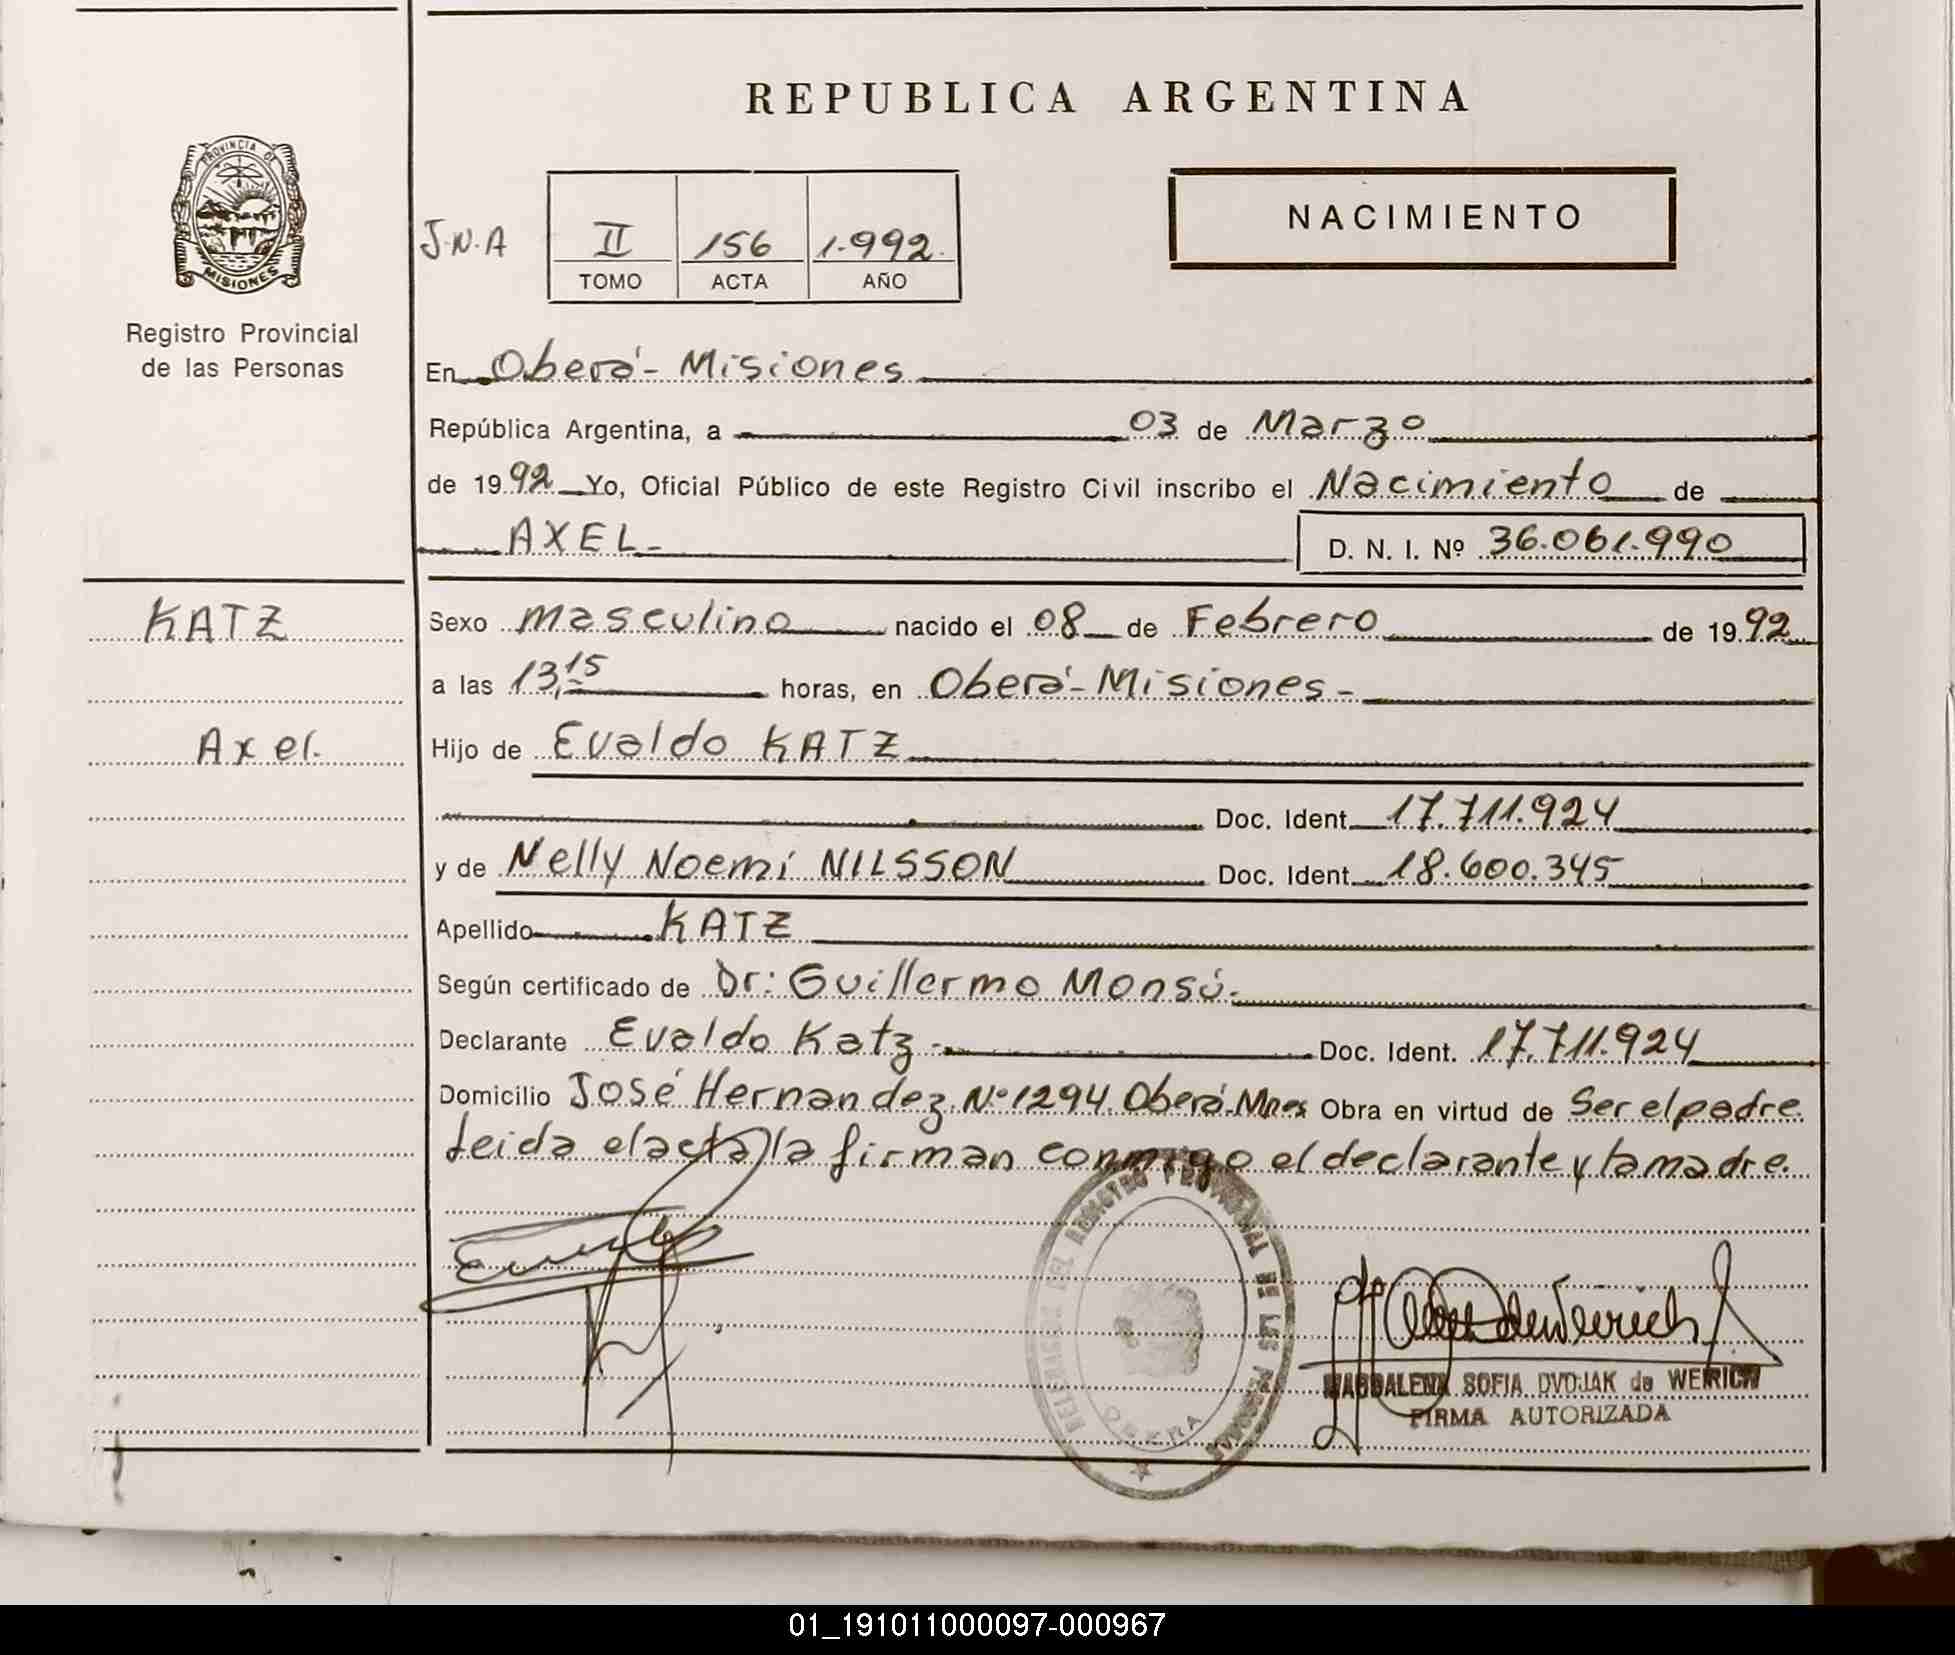 REPUBLICA ARGENTINA
PROVINCIA DE
MISIONES
Registro Provincial
de las Personas
J.N.A
II 156 1.992.
TOMO ACTA AÑO
NACIMIENTO
En Oberá - Misiones
República Argentina, a 03 de Marzo
de 1992 Yo, Oficial Público de este Registro Civil inscribo el Nacimiento de
AXEL- D. N. I. Nº 36.061.990
KATZ
Axel.
Sexo masculino nacido el 08 de Febrero de 1992
a las 13,15 horas, en Oberá - Misiones -
Hijo de Evaldo KATZ
Doc. Ident. 17.711.924
y de Nelly Noemí NILSSON Doc. Ident. 18.600.345
Apellido KATZ
Según certificado de Dr: Guillermo Monsú.
Declarante Evaldo Katz - Doc. Ident. 17.711.924
Domicilio José Hernandez Nº 1294. Oberá-Mnes Obra en virtud de Ser el padre.
Leida el acta, la firman conmigo el declarante y la madre.
DELEGACION DEL REGISTRO PROVINCIAL DE LAS PERSONAS
OBERA
MAGDALENA SOFIA DVOJAK de WEIRICH
FIRMA AUTORIZADA
01_191011000097-000967